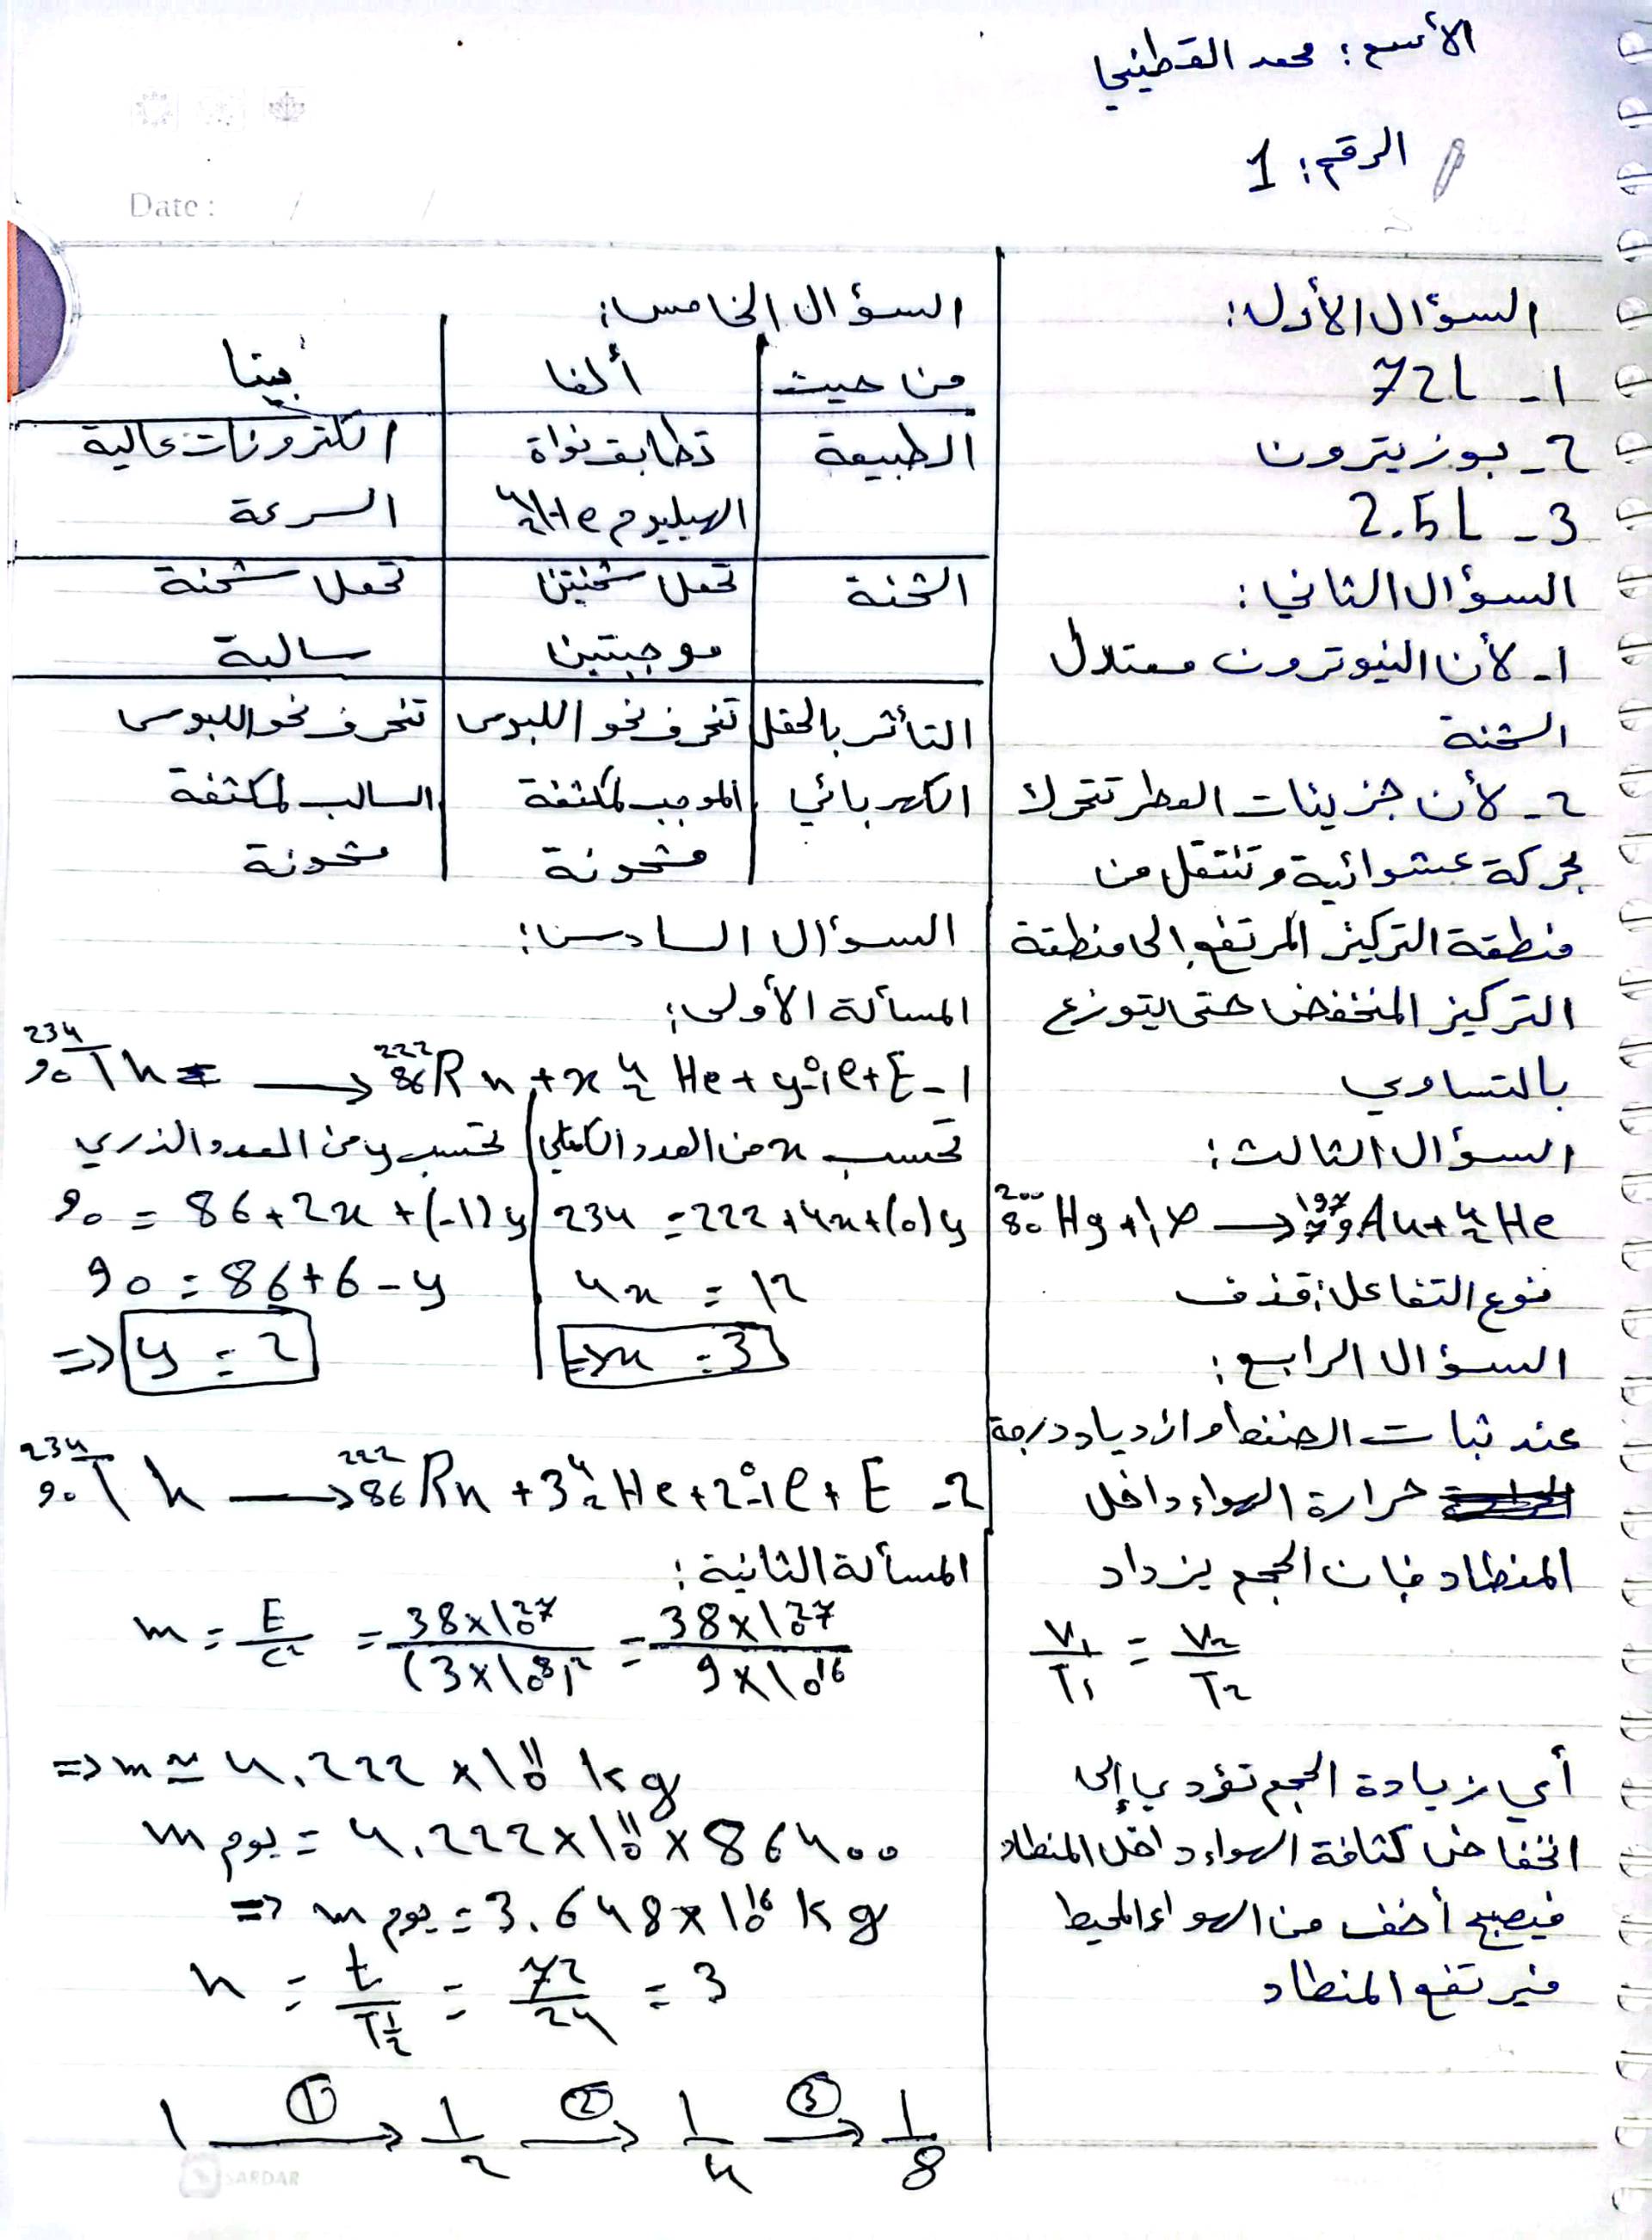 الأسم: محمد القطيني
الرقم: 1
Date: / /
السؤال الأول:
1- 72L
2- بوزيترون
3- 2.5L
السؤال الثاني:
1- لأن النيوترون معتدل
الشحنة
2- لأن جزيئات العطر تتحرك
بحركة عشوائية وتنتقل من
منطقة التركيز المرتفع إلى منطقة
التركيز المنخفض حتى يتوزع
بالتساوي
السؤال الثالث:
²⁰⁰₈₀Hg + ¹₁P → ¹⁹⁷₇₉Au + ⁴₂He
نوع التفاعل: قذف
السؤال الرابع:
عند ثبات الضغط وازدياد درجة
حرارة الهواء داخل
المنطاد فإن الحجم يزداد
V₁/T₁ = V₂/T₂
أي زيادة الحجم تؤدي إلى
انخفاض كثافة الهواء داخل المنطاد
فيصبح أخف من الهواء المحيط
فيرتفع المنطاد
السؤال الخامس:
من حيث | ألفا | بيتا
الطبيعة | تطابق نواة | الكترونات عالية
الهيليوم ⁴₂He | السرعة
الشحنة | تحمل شحنتين | تحمل شحنة
موجبتين | سالبة
التأثر بالحقل | تنحرف نحو اللبوس | تنحرف نحو اللبوس
الكهربائي | الموجب لمكثفة | السالب لمكثفة
مشحونة | مشحونة
السؤال السادس:
المسألة الأولى:
1- ²³⁴₉₀Th → ²²²₈₆Rn + x ⁴₂He + y ⁰₋₁e + E
نحسب x من العدد الكتلي | نحسب y من العدد الذري
234 = 222 + 4x + (0)y | 90 = 86 + 2x + (-1)y
4x = 12 | 90 = 86 + 6 - y
=> x = 3 | => y = 2
2- ²³⁴₉₀Th → ²²²₈₆Rn + 3 ⁴₂He + 2 ⁰₋₁e + E
المسألة الثانية:
m = E/c² = 38×10²⁷/(3×10⁸)² = 38×10²⁷/9×10¹⁶
=> m ≃ 4.222 × 10¹¹ kg
m يوم = 4.222 × 10¹¹ × 86400
=> m يوم = 3.648 × 10¹⁶ kg
n = t/T½ = 72/24 = 3
1 —①→ 1/2 —②→ 1/4 —③→ 1/8
SARDAR